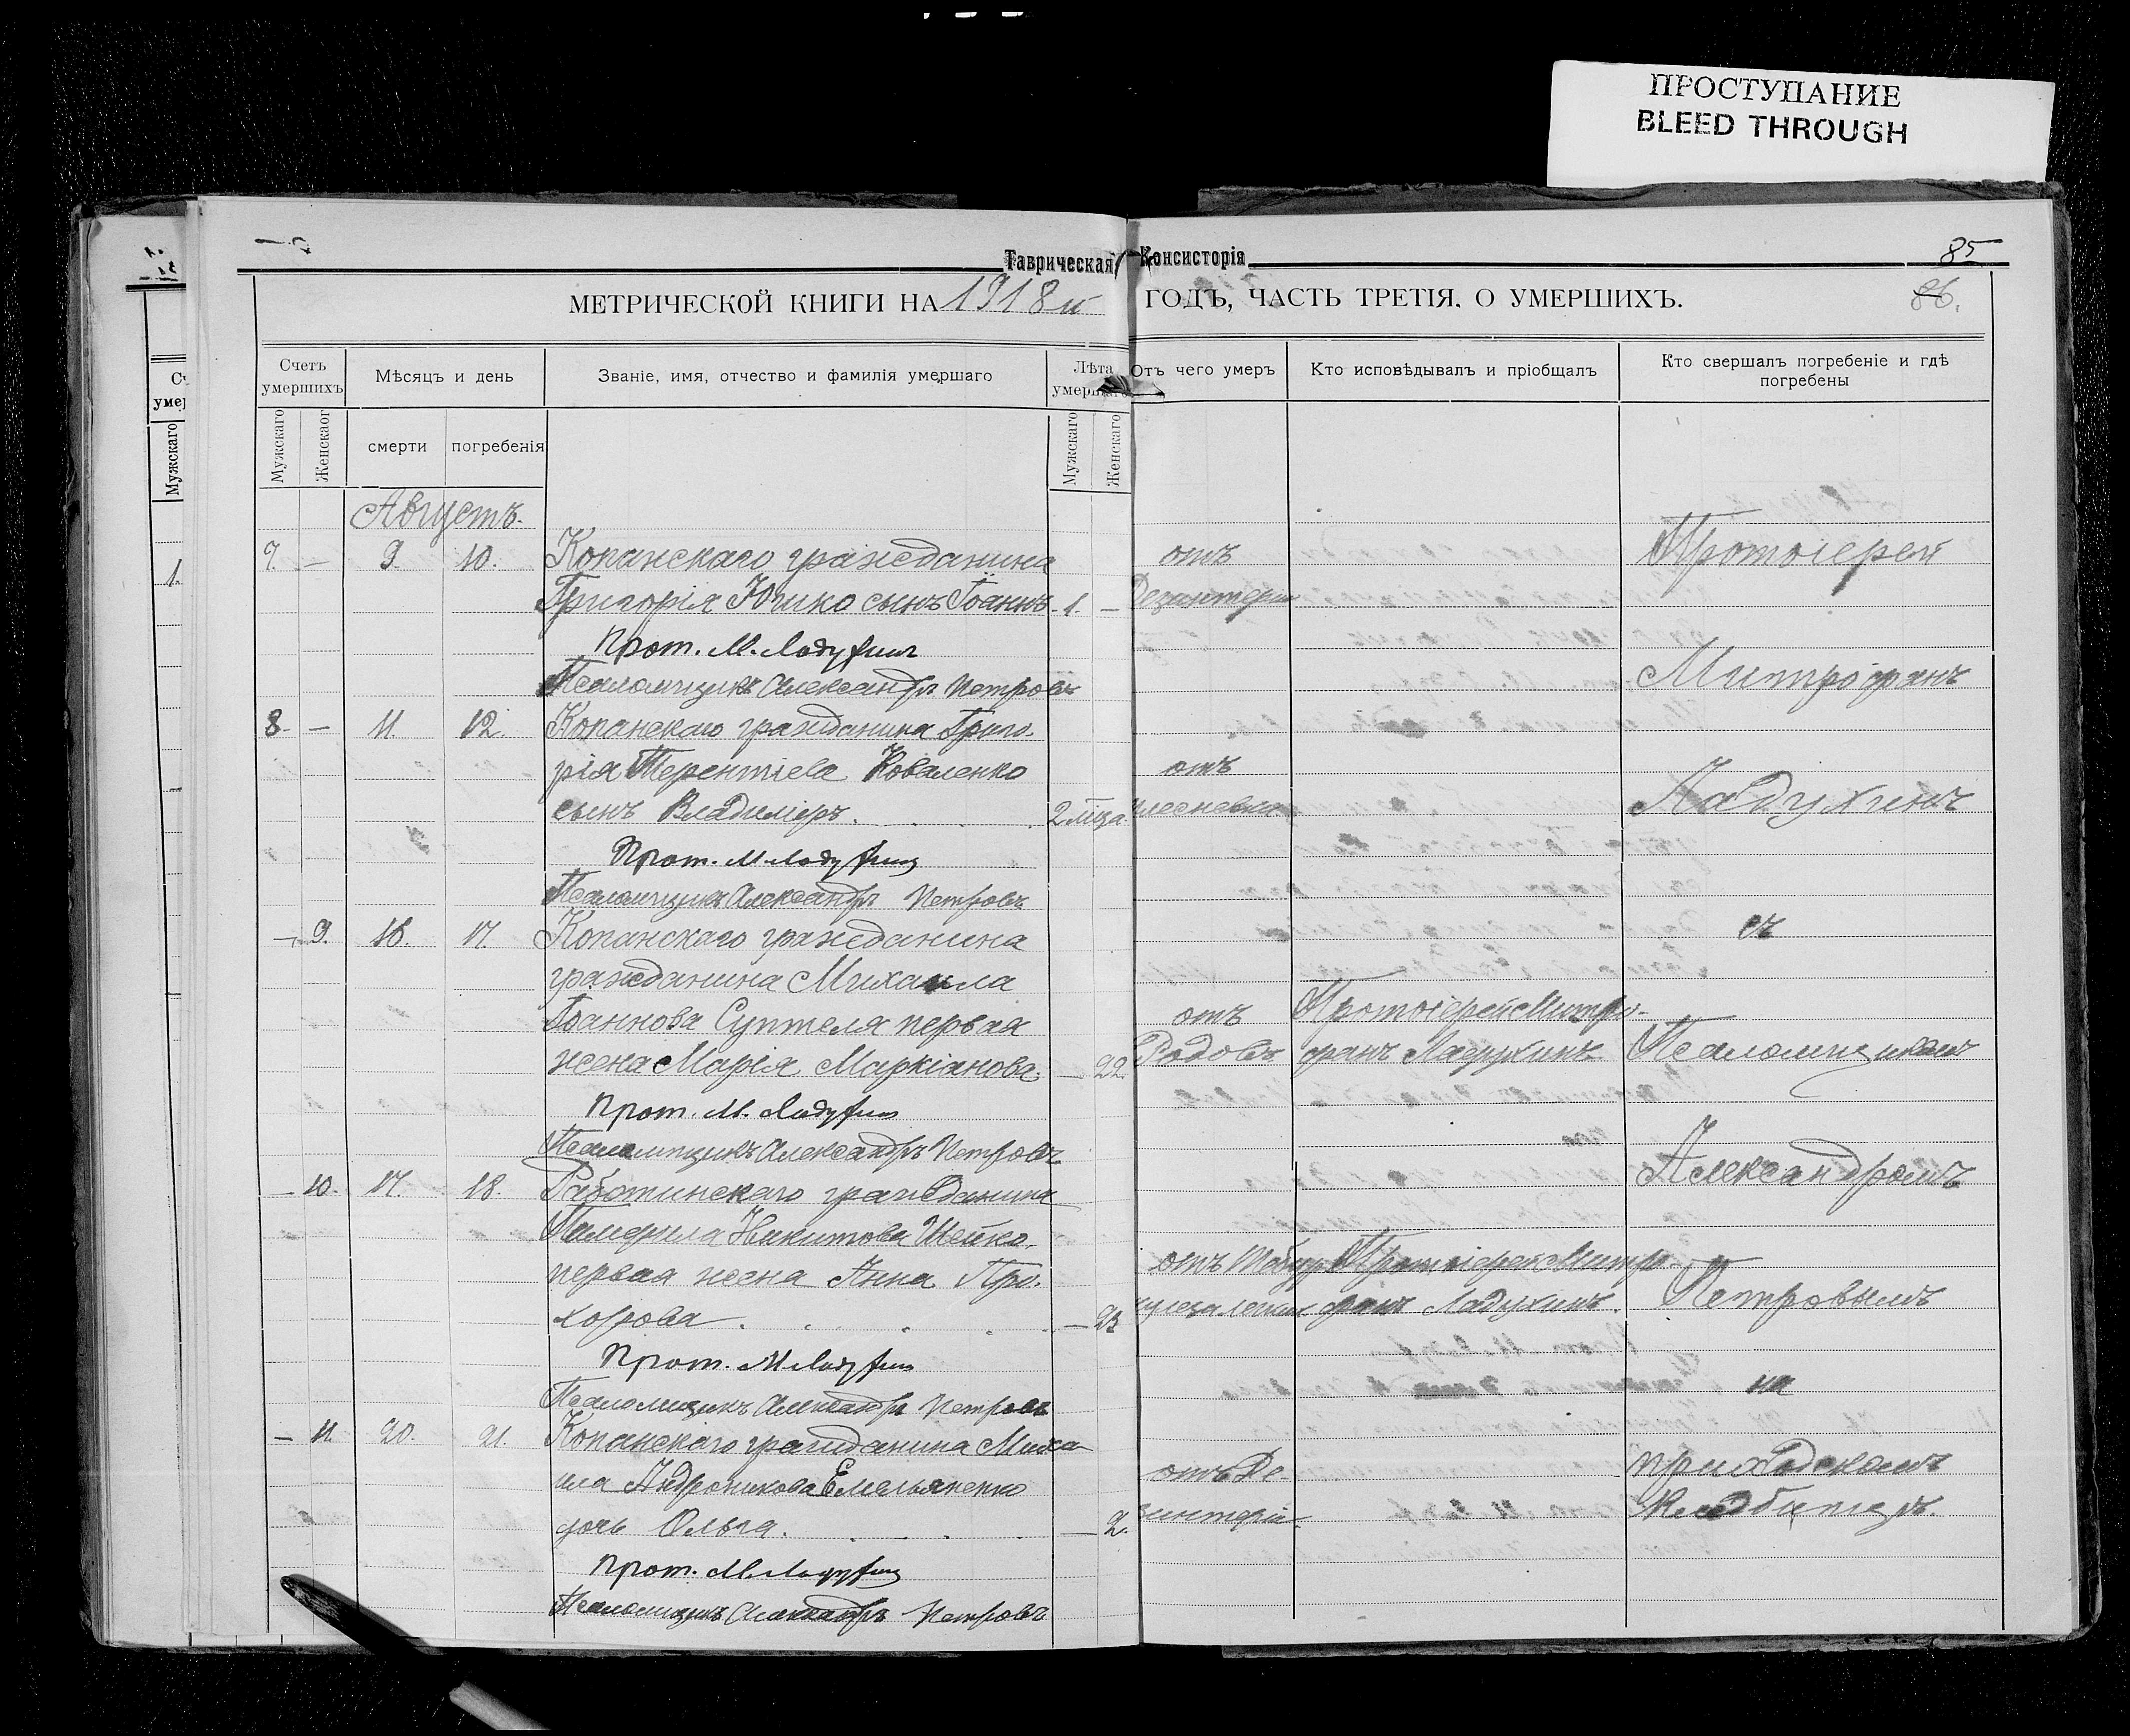 ПРОСТУПАНИЕ
BLEED THROUGH
Таврическая Консисторія
85
86.
МЕТРИЧЕСКОЙ КНИГИ НА 1918 й ГОДЪ, ЧАСТЬ ТРЕТІЯ. О УМЕРШИХЪ.
Счетъ умершихъ
Мѣсяцъ и день
Званіе, имя, отчество и фамилія умершаго
Лѣта умершаго
Отъ чего умеръ
Кто исповѣдывалъ и пріобщалъ
Кто свершалъ погребеніе и гдѣ погребены
Мужскаго
Женскаог
смерти
погребенія
Мужскаго
Женскаго
Августъ.
7. — 9. 10. Копанскаго гражданина
Григорія Юшко сынъ Іоаннъ. 1. —
Прот. М. Ладухин
Псаломщикъ Александръ Петровъ
8. — 11. 12. Копанскаго гражданина Григо-
рія Терентіева Коваленко
сынъ Владиміръ. 2 мца
Прот. М. Ладухин
Псаломщикъ Александръ Петровъ
— 9. 16. 17. Копанскаго гражданина
гражданина Михаила
Іоаннова Суптеля первая
жена Марія Маркіанова — 22.
Прот. М. Ладухин
Псаломщикъ Александръ Петровъ
— 10. 17. 18. Работинскаго гражданина
Памфила Никитова Шейко
первая жена Анна Про-
хорова — 23
Прот. М. Ладухин
Псаломщикъ Александръ Петровъ
— 11. 20. 21. Копанскаго гражданина Миха-
ила Андроникова Емельяненко
дочь Ольга. — 2.
Прот. М. Ладухин
Псаломщикъ Александръ Петровъ
отъ
Дезинтеріи
отъ
отъ
Родовъ
отъ
отъ Де-
зинтеріи
Протоіерей Митро-
фанъ Ладухинъ
Протоіерей Митро-
фанъ Ладухинъ.
Протоіерей
Митрофанъ
Ладухинъ
съ
Псаломщикомъ
Александромъ
Петровымъ
на
приходскомъ
кладбищѣ.
Мужскаго
1.